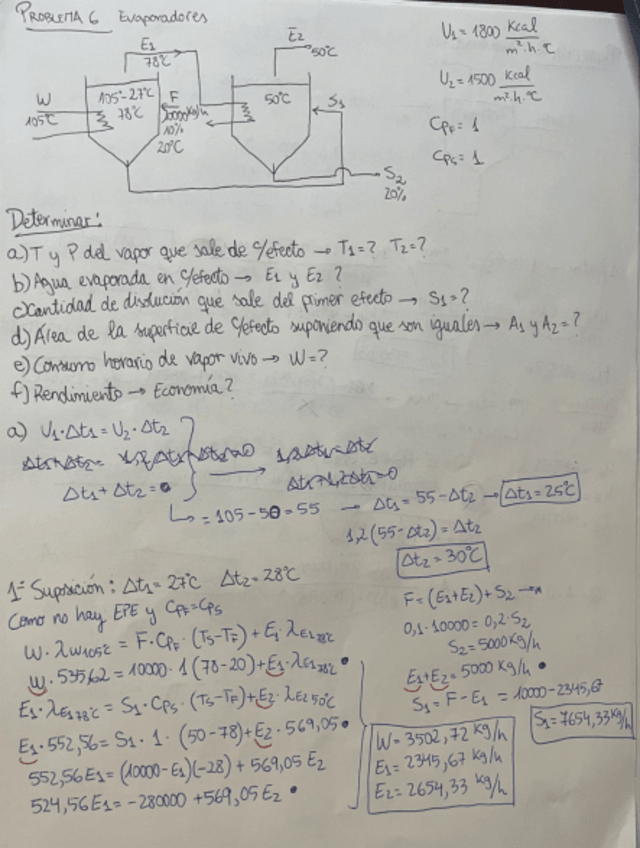 PROBLEMA 6 Evaporadores
E1
78°C
E2
50°C
U1 = 1800 Kcal/m²·h·°C
U2 = 1500 Kcal/m²·h·°C
CPF = 1
CPS = 1
W
105°C
105°-27°C
78°C
F
10000Kg/h
10%
20°C
50°C
S1
S2
20%
Determinar:
a) T y P del vapor que sale de c/efecto → T1=? T2=?
b) Agua evaporada en c/efecto → E1 y E2 ?
c) Cantidad de disolución que sale del primer efecto → S1=?
d) Área de la superficie de c/efecto suponiendo que son iguales → A1 y A2=?
e) Consumo horario de vapor vivo → W=?
f) Rendimiento → Economía?
a) U1·Δt1 = U2·Δt2
Δt1 + Δt2 =
↳ = 105-50 = 55 → Δt1 = 55 - Δt2 → Δt1 = 25°C
1,2(55-Δt2) = Δt2
Δt2 = 30°C
1ª Suposición: Δt1 = 27°C Δt2 = 28°C
Como no hay EPE y CPF = CPS
W·λW105°C = F·CPF·(TS-TF) + E1·λE178°C
W·535,62 = 10000·1(78-20) + E1·λE178°C •
E1·λE178°C = S1·CPS·(TS-TF) + E2·λE250°C
E1·552,56 = S1·1·(50-78) + E2·569,05 •
552,56E1 = (10000-E1)(-28) + 569,05 E2
524,56E1 = -280000 + 569,05 E2 •
F = (E1+E2) + S2 →
0,1·10000 = 0,2·S2
S2 = 5000 Kg/h
E1+E2 = 5000 Kg/h •
S1 = F - E1 = 10000 - 2345,67
S1 = 7654,33 Kg/h
W = 3502,72 Kg/h
E1 = 2345,67 Kg/h
E2 = 2654,33 Kg/h